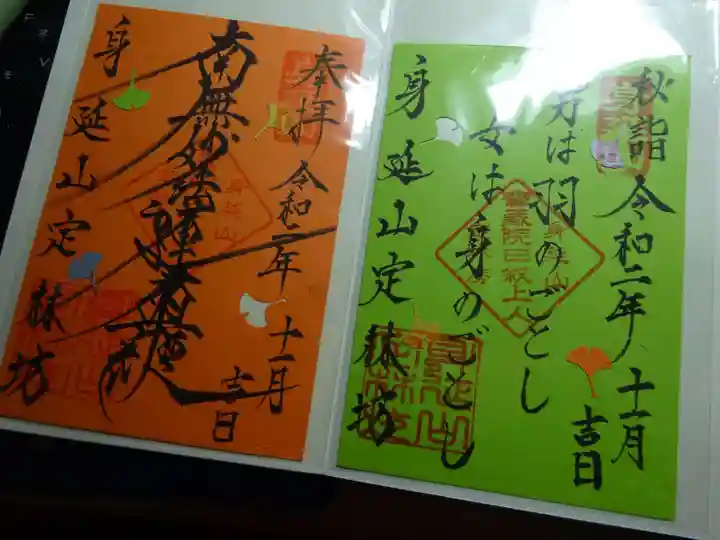 奉拝 令和二年 十一月
吉日
南無妙法蓮華経
身延山定林坊
秋詣 令和二年 十一月
吉日
男は羽のごとし
女は身のごとし
身延山定林坊
身延山
日叙上人